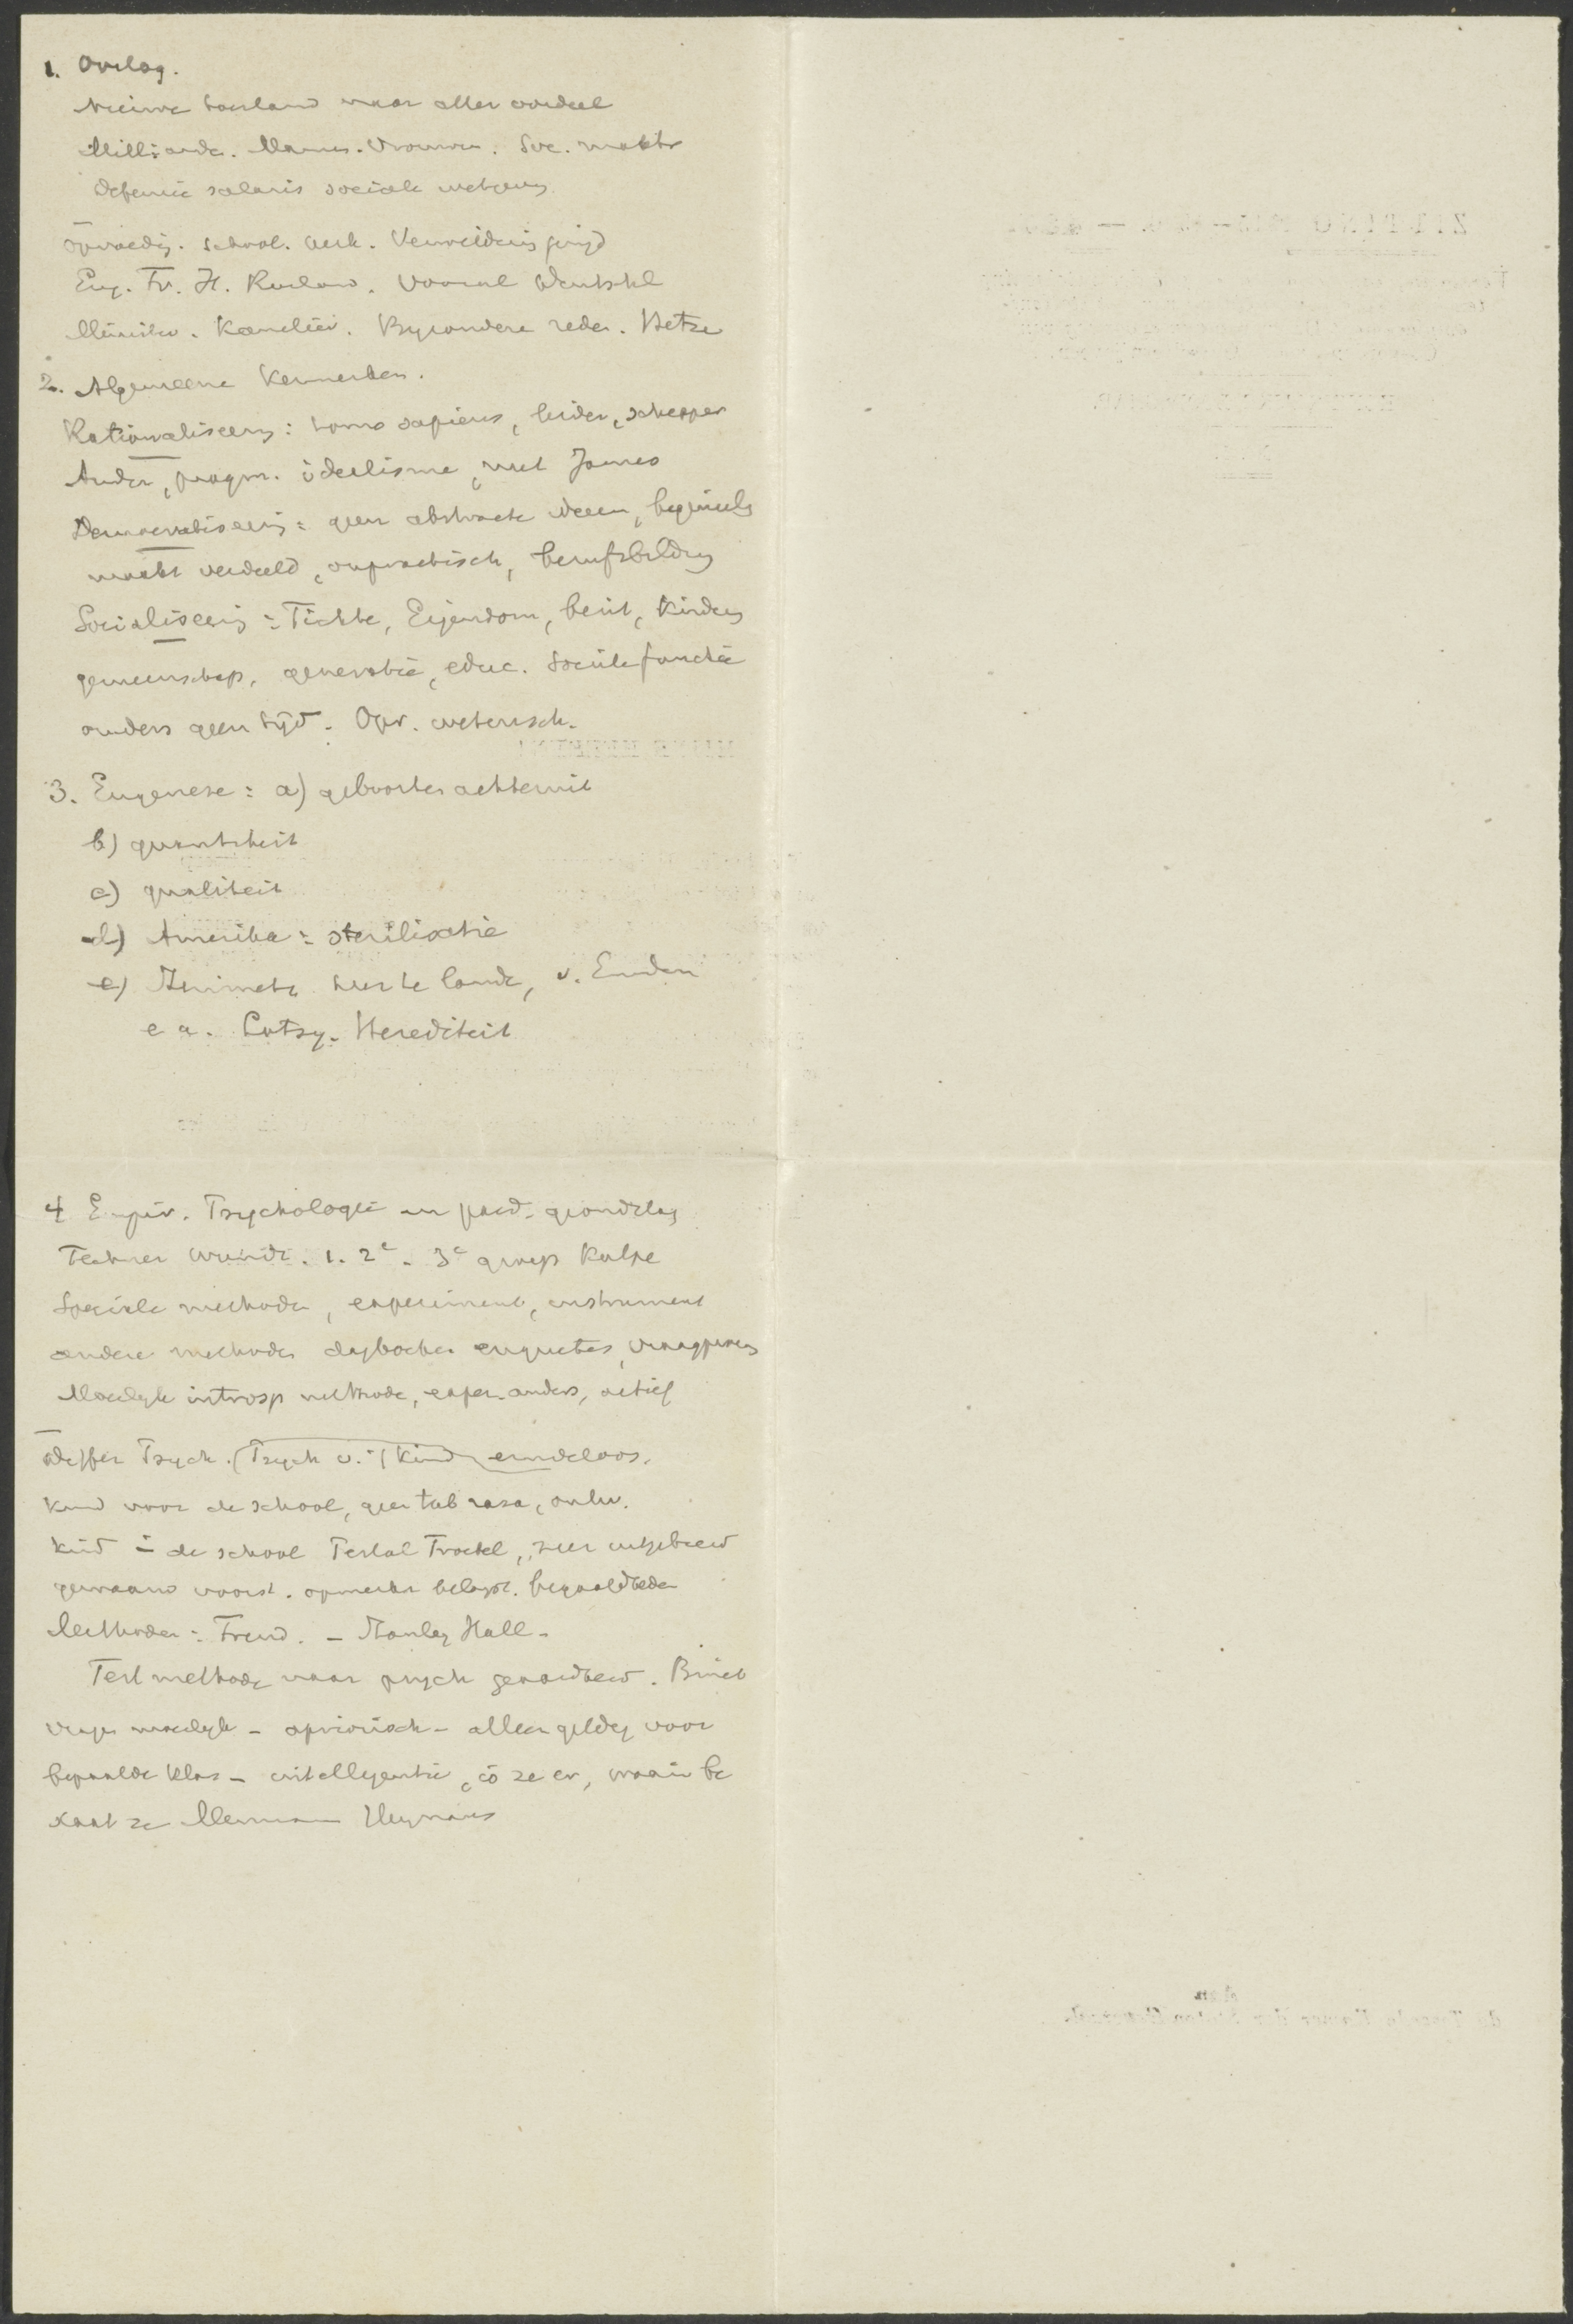 1. Oorlog.
Nieuwe toestand naar aller oordeel
Milliarde. Mannen. Vrouwen. Soc. macht
Defensie salaris sociale wetgeving
opvoedig. school. werk. Verwildering jeugd
Eng. Fr. It. Rusland. Vooral Duitschl
Minister. Kanselier. Byzondere reden. Hetze
2. Algemeene Kenmerken.
Rationaliseering: homo sapiens, leider, schepper
Ander, pragm. idealisme, met James
Democratiseering: geen abstracte ideeen, beginsels
macht verdeeld, onpractisch, berufsbildung
Socialiseering: Fichte, Eigendom, bezit, Kinder
gemeenschap, generatie, educ. Sociale functie
anders geen tijd. Opv. wetensch.
3. Eugenese: a) geboorten achteruit
b) quantiteit
c) qualiteit
d) Amerika: sterilisatie
e) hier te lande, v. Emden
e a. Lotsy. Herediteit
4 Empir. Psychologie en paed. grondslag
Fechner Wundt. 1. 2e. 3e groep Kulpe
Speciale methoden, experiment, instrument
andere methoden dagboeken enquetes,
Moeilyk introsp methode, exper. anders, actief
Psych. (Psych v. 't Kind eindeloos.
Kind voor de school, geen tab rasa, ontw.
Kind in de school Pestal Froebel, zeer uitgebreid
voorst. opmerkz begaafdheden
Methoden: Freud. - Stanley Hall -
Test methode naar psych geaardheid. Binet
moeilyk - apriorisch - alleen geldig voor
bepaalde klas - intelligentie, is ze er, waarin be
staat ze Heymans